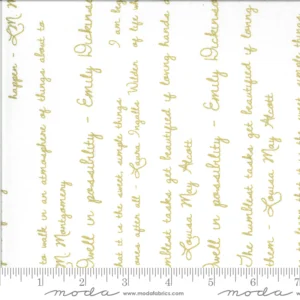 happen - L M M
to walk in an atmosphere of things about to
M Montgomery
Dwell in possibility - Emily Dickinson
I am be
that it is the sweet, simple things of life
ones after all - Laura Ingalls Wilder
humblest tasks get beautified if loving hands
Louisa May Alcott
Dwell in possibility - Emily Dickinson
The humblest tasks get beautified if loving
them - Louisa May Alcott
1 2 3 4 5 6 7
moda www.modafabrics.com moda